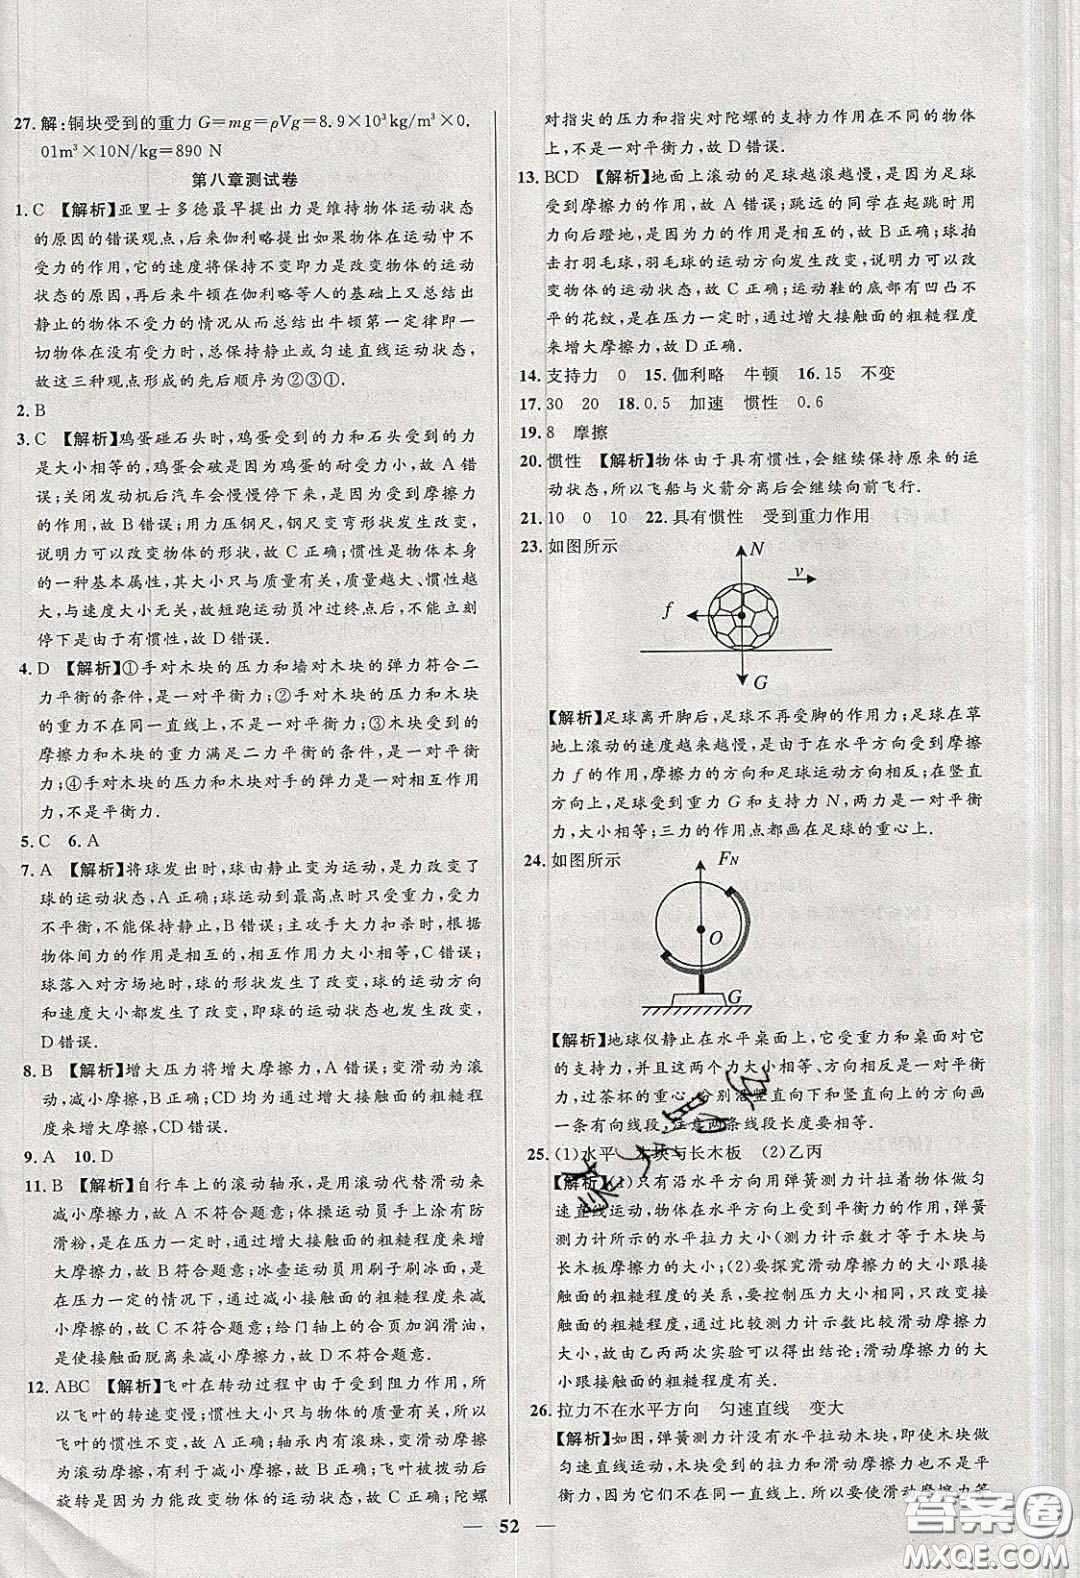 27. 解:铜块受到的重力 G=mg=ρVg=8.9×10³kg/m³×0.
01m³×10N/kg=890 N
第八章测试卷
1. C 【解析】亚里士多德最早提出力是维持物体运动状态
的原因的错误观点,后来伽利略提出如果物体在运动中不
受力的作用,它的速度将保持不变即力是改变物体的运动
状态的原因,再后来牛顿在伽利略等人的基础上又总结出
静止的物体不受力的情况从而总结出牛顿第一定律即一
切物体在没有受力时,总保持静止或匀速直线运动状态,
故这三种观点形成的先后顺序为②③①.
2. B
3. C 【解析】鸡蛋碰石头时,鸡蛋受到的力和石头受到的力
是大小相等的,鸡蛋会破是因为鸡蛋的耐受力小,故 A 错
误;关闭发动机后汽车会慢慢停下来,是因为受到摩擦力
的作用,故 B 错误;用力压钢尺,钢尺变弯形状发生改变,
说明力可以改变物体的形状,故 C 正确;惯性是物体本身
的一种基本属性,其大小只与质量有关,质量越大、惯性越
大,与速度大小无关,故短跑运动员冲过终点后,不能立刻
停下是由于有惯性,故 D 错误.
4. D 【解析】①手对木块的压力和墙对木块的弹力符合二
力平衡的条件,是一对平衡力;②手对木块的压力和木块
的重力不在同一直线上,不是一对平衡力;③木块受到的
摩擦力和木块的重力满足二力平衡的条件,是一对平衡
力;④手对木块的压力和木块对手的弹力是一对相互作用
力,不是平衡力.
5. C 6. A
7. A 【解析】将球发出时,球由静止变为运动,是力改变了
球的运动状态,A 正确;球运动到最高点时只受重力,受力
不平衡,不能保持静止,B 错误;主攻手大力扣杀时,根据
物体间力的作用是相互的,相互作用力大小相等,C 错误;
球落入对方场地时,球的形状没有改变,球的运动方向
和速度大小都发生了改变,即球的运动状态也发生改变,
D 错误.
8. B 【解析】增大压力将增大摩擦力,A 错误;变滑动为滚
动,减小摩擦,B 正确;CD 均为通过增大接触面的粗糙程
度来增大摩擦,CD 错误.
9. A 10. D
11. B 【解析】自行车上的滚动轴承,是用滚动代替滑动来
减小摩擦力,故 A 不符合题意;体操运动员手上涂有防
滑粉,是在压力一定时,通过增大接触面的粗糙程度来增
大摩擦力,故 B 符合题意;冰壶运动员用刷子刷冰面,是
在压力一定的情况下,通过减小接触面的粗糙程度来减
小摩擦的,故 C 不符合题意;给门轴上的合页加润滑油,
是使接触面脱离来减小摩擦力,故 D 不符合题意.
12. ABC 【解析】飞叶在转动过程中由于受到阻力作用,所
以飞叶的转速变慢;惯性大小只与物体的质量有关,所
以飞叶的惯性不变,故 A 正确;轴承内有滚珠,变滑动摩擦
为滚动摩擦,有利于减小摩擦,故 B 正确;飞叶被拨动后
旋转是因为力能改变物体的运动状态,故 C 正确;陀螺
对指尖的压力和指尖对陀螺的支持力作用在不同的物体
上,不是一对平衡力,故 D 错误.
13. BCD 【解析】地面上滚动的足球越滚越慢,是因为足球
受到摩擦力的作用,故 A 错误;跳远的同学在起跳时用
力向后蹬地,是因为力的作用是相互的,故 B 正确;球拍
拍击打羽毛球,羽毛球的运动方向发生改变,说明力可以
改变物体的运动状态,故 C 正确;运动鞋的底部有凹凸不
平的花纹,是在压力一定时,通过增大接触面的粗糙程度
来增大摩擦力,故 D 正确.
14. 支持力 0 15. 伽利略 牛顿 16. 15 不变
17. 30 20 18. 0.5 加速 惯性 0.6
19. 8 摩擦
20. 惯性 【解析】物体由于具有惯性,会继续保持原来的运
动状态,所以飞船与火箭分离后会继续向前飞行.
21. 10 0 10 22. 具有惯性 受到重力作用
23. 如图所示
N
v
f
G
【解析】足球离开脚后,足球不再受脚的作用力;足球在草
地上滚动的速度越来越慢,是由于在水平方向受到摩擦
力 f 的作用,摩擦力的方向和足球运动方向相反;在竖直
方向上,足球受到重力 G 和支持力 N,两力是一对平衡
力,大小相等;三力的作用点都画在足球的重心上.
24. 如图所示
FN
O
G
【解析】地球仪静止在水平桌面上,它受重力和桌面对它
的支持力,并且这两个力大小相等、方向相反是一对平衡
力,过茶杯的重心,分别沿竖直向下和竖直向上方向画
一条有向线段,注意两条线段长度要相等.
25. (1)水平 木块与长木板 (2)乙丙
【解析】(1)只有沿水平方向用弹簧测力计拉着物体做匀
速直线运动,物体在水平方向上受到平衡力的作用,弹簧
测力计所示的水平拉力大小(测力计示数才等于木块与
长木板摩擦力的大小;(2)要探究滑动摩擦力大小跟接
触面的粗糙程度的关系,要控制压力不变,只改变接触
面的粗糙程度,通过比较测力计示数比较滑动摩擦力
大小,故由乙丙两次实验可以得出结论:滑动摩擦力大
小与接触面的粗糙程度有关.
26. 拉力不在水平方向 匀速直线 变大
【解析】如图,弹簧测力计没有水平拉动木块,即使木块做
匀速直线运动,木块受到的拉力与摩擦力也不是一对平
衡力,因为它们不在同一直线上.所以木块所受摩擦力等
52
答案圈
MXQE.COM